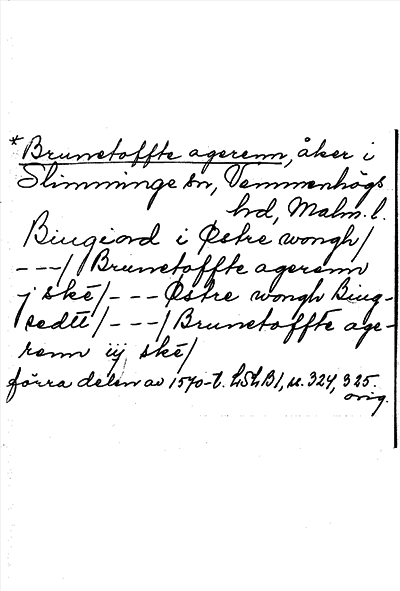 *Brunetoffte agerenn, åker i
Slimminge sn, Vemmenhögs
hd, Malm. l.
Biugiord i Østre wongh/
---/ Brunetoffte agerenn
j ské/--- Østre wongh Biug-
sedtt/---/ Brunetoffte age-
renn iij ské/
förra delen av 1570-t. LSLB1, s. 324, 325.
orig.